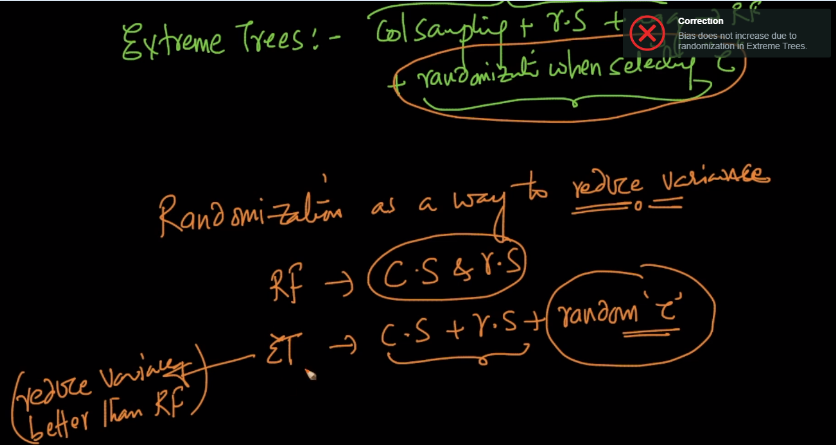 Extreme Trees:- Col sampling + r.S + RF
+ randomizati when selecting τ
Correction
Bias does not increase due to
randomization in Extreme Trees.
Randomization as a way to reduce variance
RF → C.S & r.S
ET → C.S + r.S + random 'τ'
(reduce variance
better than RF)